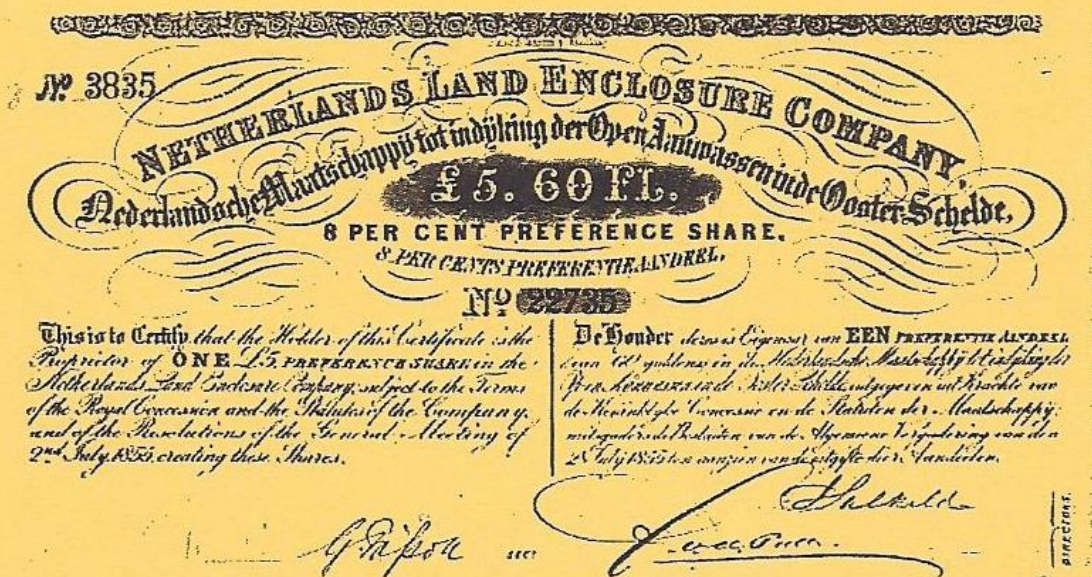 № 3835
NETHERLANDS LAND ENCLOSURE COMPANY,
Nederlandsche Maatschappij tot indijking der Open Aanwassen in de Ooster-Schelde,
£5. 60 FL.
8 PER CENT PREFERENCE SHARE.
8 PER CENTS PREFERENTIE AANDEEL.
Nº 22735
This is to Certify that the Holder of this Certificate is the
Proprietor of ONE £5 PREFERENCE SHARE in the
Netherlands Land Enclosure Company, subject to the Terms
of the Royal Concession and the Statutes of the Company,
and of the Resolutions of the General Meeting of
2nd July creating these Shares.
De Houder dezes is Eigenaar van EEN PREFERENTIE AANDEEL
van guldens in de Nederlandsche Maatschappij tot indijking der
Open Aanwassen in de Ooster Schelde, uitgegeven uit krachte van
de Koninklijke Concessie en de Statuten der Maatschappij;
mitsgaders de Besluiten van de Algemeene Vergadering van den
July ten aanzien van de uitgifte dier Aandeelen.
DIRECTORS.